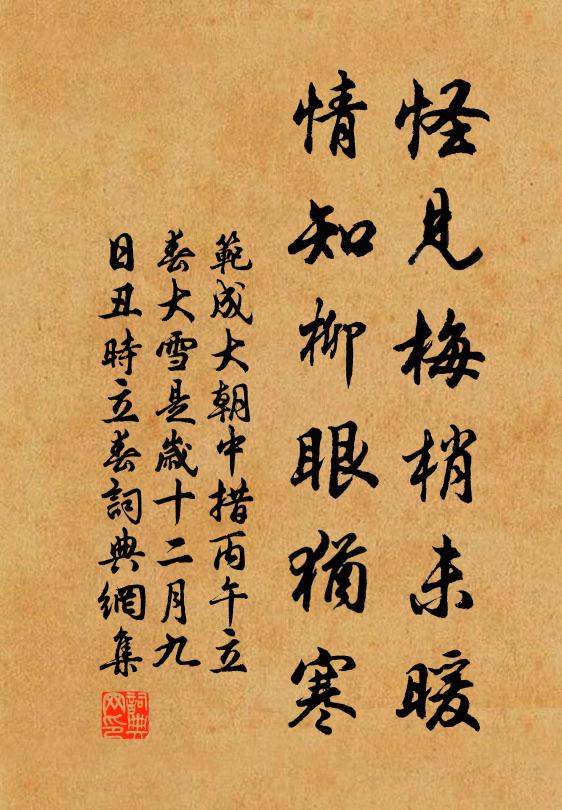 怪見梅梢未暖
情知柳眼猶寒
範成大朝中措丙午立
春大雪是歲十二月九
日丑時立春詞典網集
詞典網印